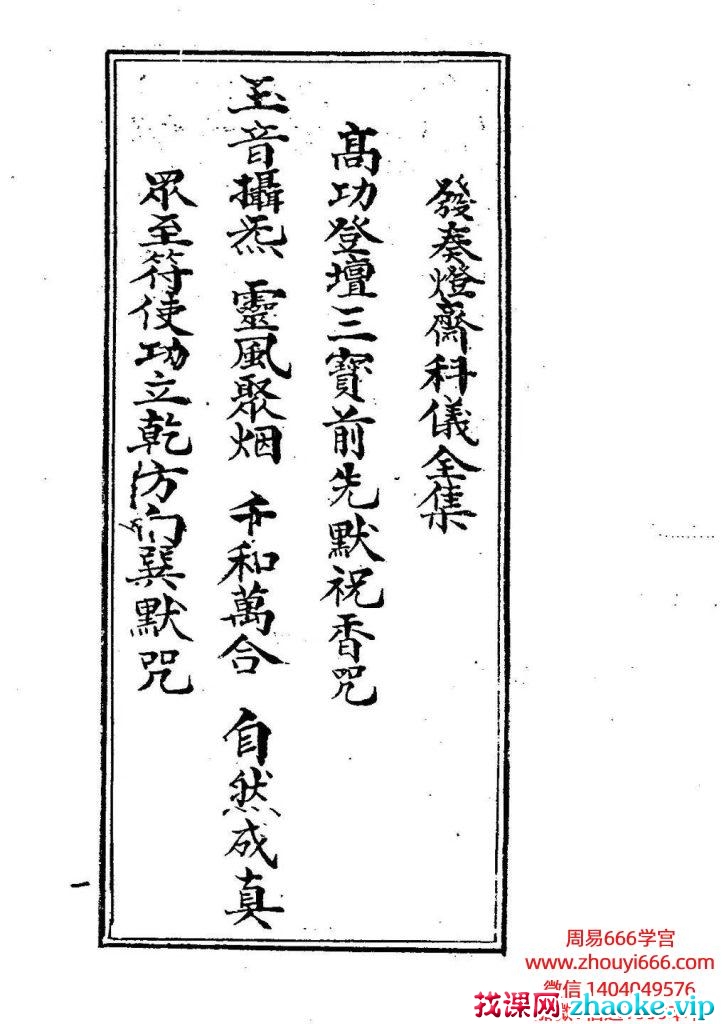 發奏燈齋科儀全集
高功登壇三寶前先默祝香咒
玉音攝炁 靈風聚烟 千和萬合 自然成真
眾至符使功立乾方向巽默咒
一
周易666学宫
www.zhouyi666.com
微信 1404049576
找课网zhaoke.vip